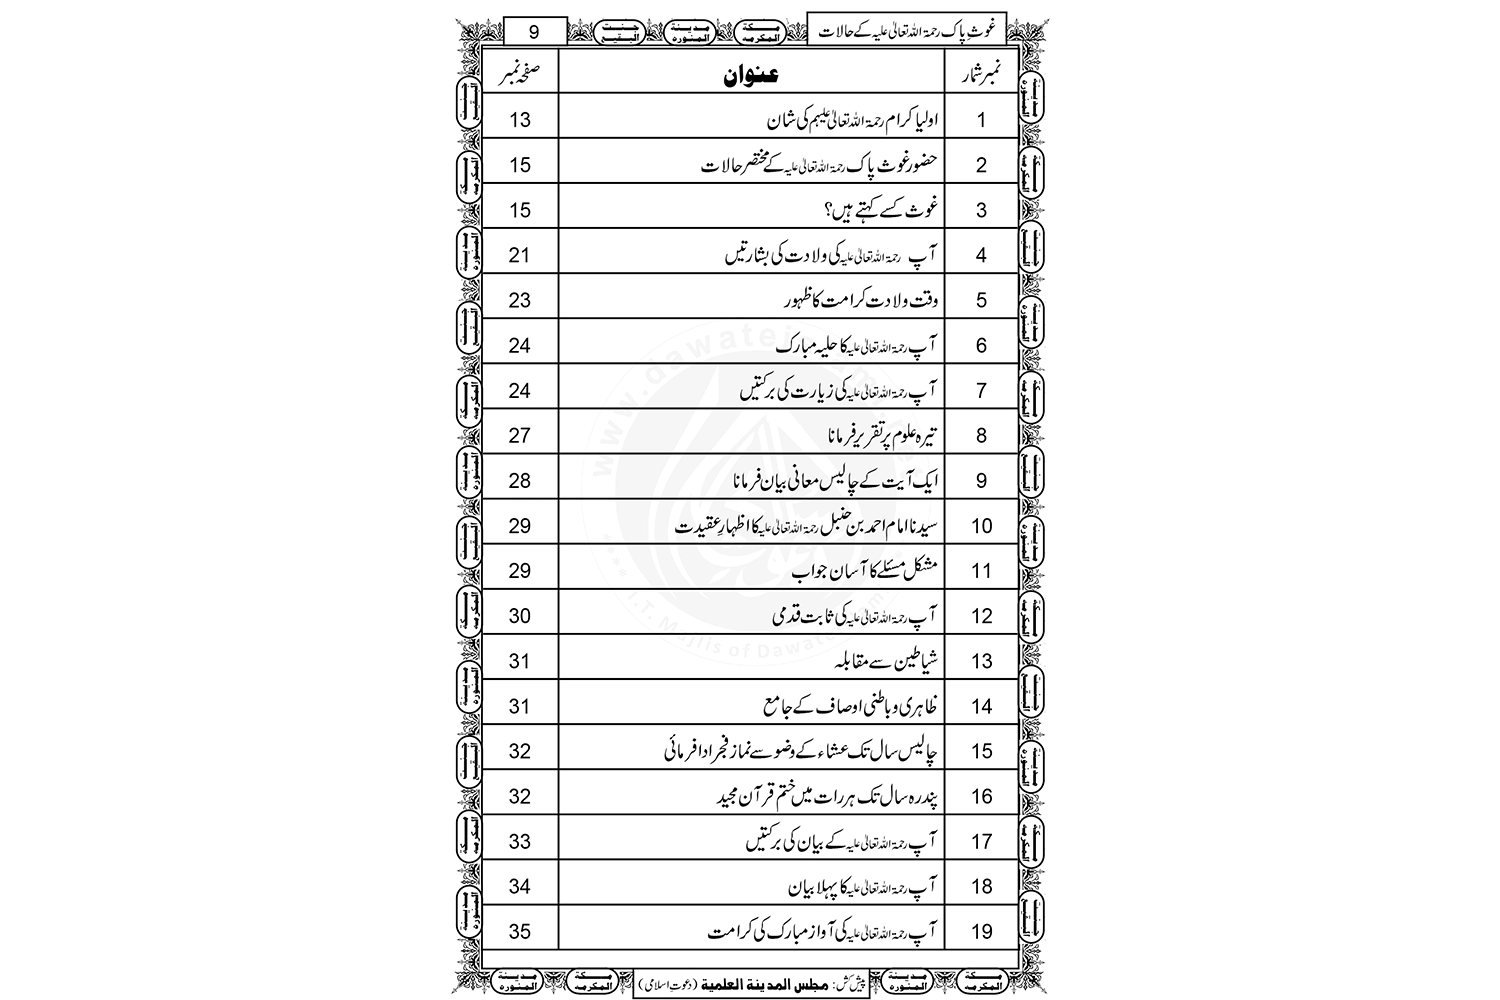 غوثِ پاک رحمۃ اللہ تعالیٰ علیہ کے حالات مکۃ المکرمہ مدینۃ المنورہ جنت البقیع 9
نمبر شمار عنوان صفحہ نمبر
1 اولیا کرام رحمۃ اللہ تعالیٰ علیہم کی شان 13
2 حضور غوث پاک رحمۃ اللہ تعالیٰ علیہ کے مختصر حالات 15
3 غوث کسے کہتے ہیں؟ 15
4 آپ رحمۃ اللہ تعالیٰ علیہ کی ولادت کی بشارتیں 21
5 وقت ولادت کرامت کا ظہور 23
6 آپ رحمۃ اللہ تعالیٰ علیہ کا حلیہ مبارک 24
7 آپ رحمۃ اللہ تعالیٰ علیہ کی زیارت کی برکتیں 24
8 تیرہ علوم پر تقریر فرمانا 27
9 ایک آیت کے چالیس معانی بیان فرمانا 28
10 سیدنا امام احمد بن حنبل رحمۃ اللہ تعالیٰ علیہ کا اظہارِ عقیدت 29
11 مشکل مسئلے کا آسان جواب 29
12 آپ رحمۃ اللہ تعالیٰ علیہ کی ثابت قدمی 30
13 شیاطین سے مقابلہ 31
14 ظاہری و باطنی اوصاف کے جامع 31
15 چالیس سال تک عشاء کے وضو سے نماز فجر ادا فرمائی 32
16 پندرہ سال تک ہر رات میں ختم قرآن مجید 32
17 آپ رحمۃ اللہ تعالیٰ علیہ کے بیان کی برکتیں 33
18 آپ رحمۃ اللہ تعالیٰ علیہ کا پہلا بیان 34
19 آپ رحمۃ اللہ تعالیٰ علیہ کی آواز مبارک کی کرامت 35
مکۃ المکرمہ مدینۃ المنورہ پیش کش: مجلس المدینۃ العلمیۃ (دعوتِ اسلامی) مکۃ المکرمہ مدینۃ المنورہ